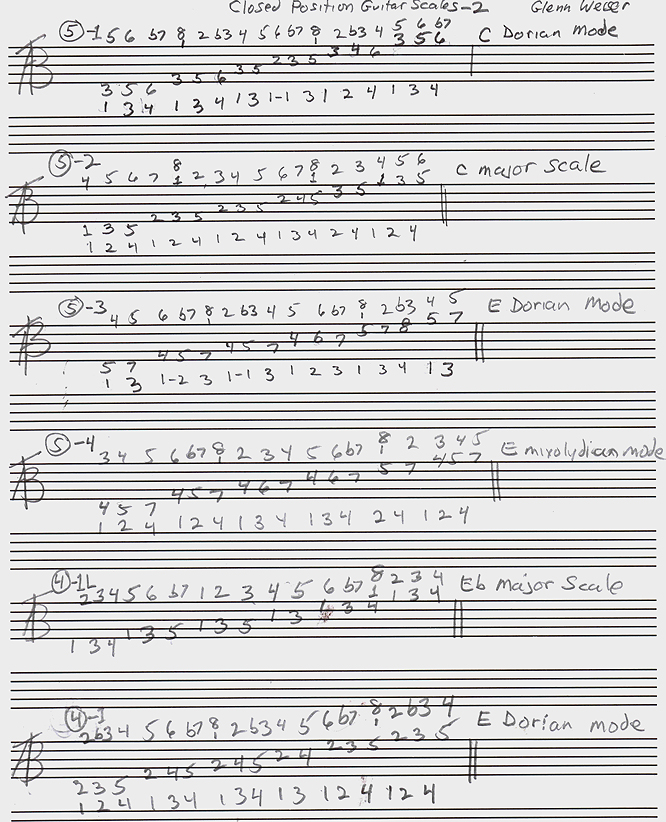 Closed Position Guitar Scales-2 Glenn Weiser
5 6 b7
⑤-1 5 6 b7 8 2 b3 4 5 6 b7 8 2 b3 4 3 5 6 C Dorian mode
1 1
TAB 3 5 6 3 5 6 3 5 2 3 5 3 4 6
1 3 4 1 3 4 1 3 1-1 3 1 2 4 1 3 4
⑤-2 8 8
4 5 6 7 1 2 3 4 5 6 7 1 2 3 4 5 6 C major scale
TAB 1 3 5 2 3 5 2 3 5 2 4 5 3 5 1 3 5
1 2 4 1 2 4 1 2 4 1 3 4 2 4 1 2 4
⑤-3 4 5 6 b7 8 2 b3 4 5 6 b7 8 2 b3 4 5 E Dorian Mode
1 1
TAB 5 7 4 5 7 4 5 7 4 6 7 5 7 8 5 7
1 3 1-2 3 1-1 3 1 2 3 1 3 4 1 3
⑤-4 3 4 5 6 b7 8 2 3 4 5 6 b7 8 2 3 4 5 E mixolydian mode
1 1
TAB 4 5 7 4 5 7 4 6 7 4 6 7 5 7 4 5 7
1 2 4 1 2 4 1 3 4 1 3 4 2 4 1 2 4
④-1L 8
2 3 4 5 6 b7 1 2 3 4 5 6 b7 1 2 3 4 Eb Major Scale
TAB 1 3 4 1 3 5 1 3 5 1 3 3 4 1 3 4
④-1
2 b3 4 5 6 b7 8 2 b3 4 5 6 b7 8 2 b3 4 E Dorian mode
1 1
TAB 2 3 5 2 4 5 2 4 5 2 4 2 3 5 2 3 5
1 2 4 1 3 4 1 3 4 1 3 1 2 4 1 2 4